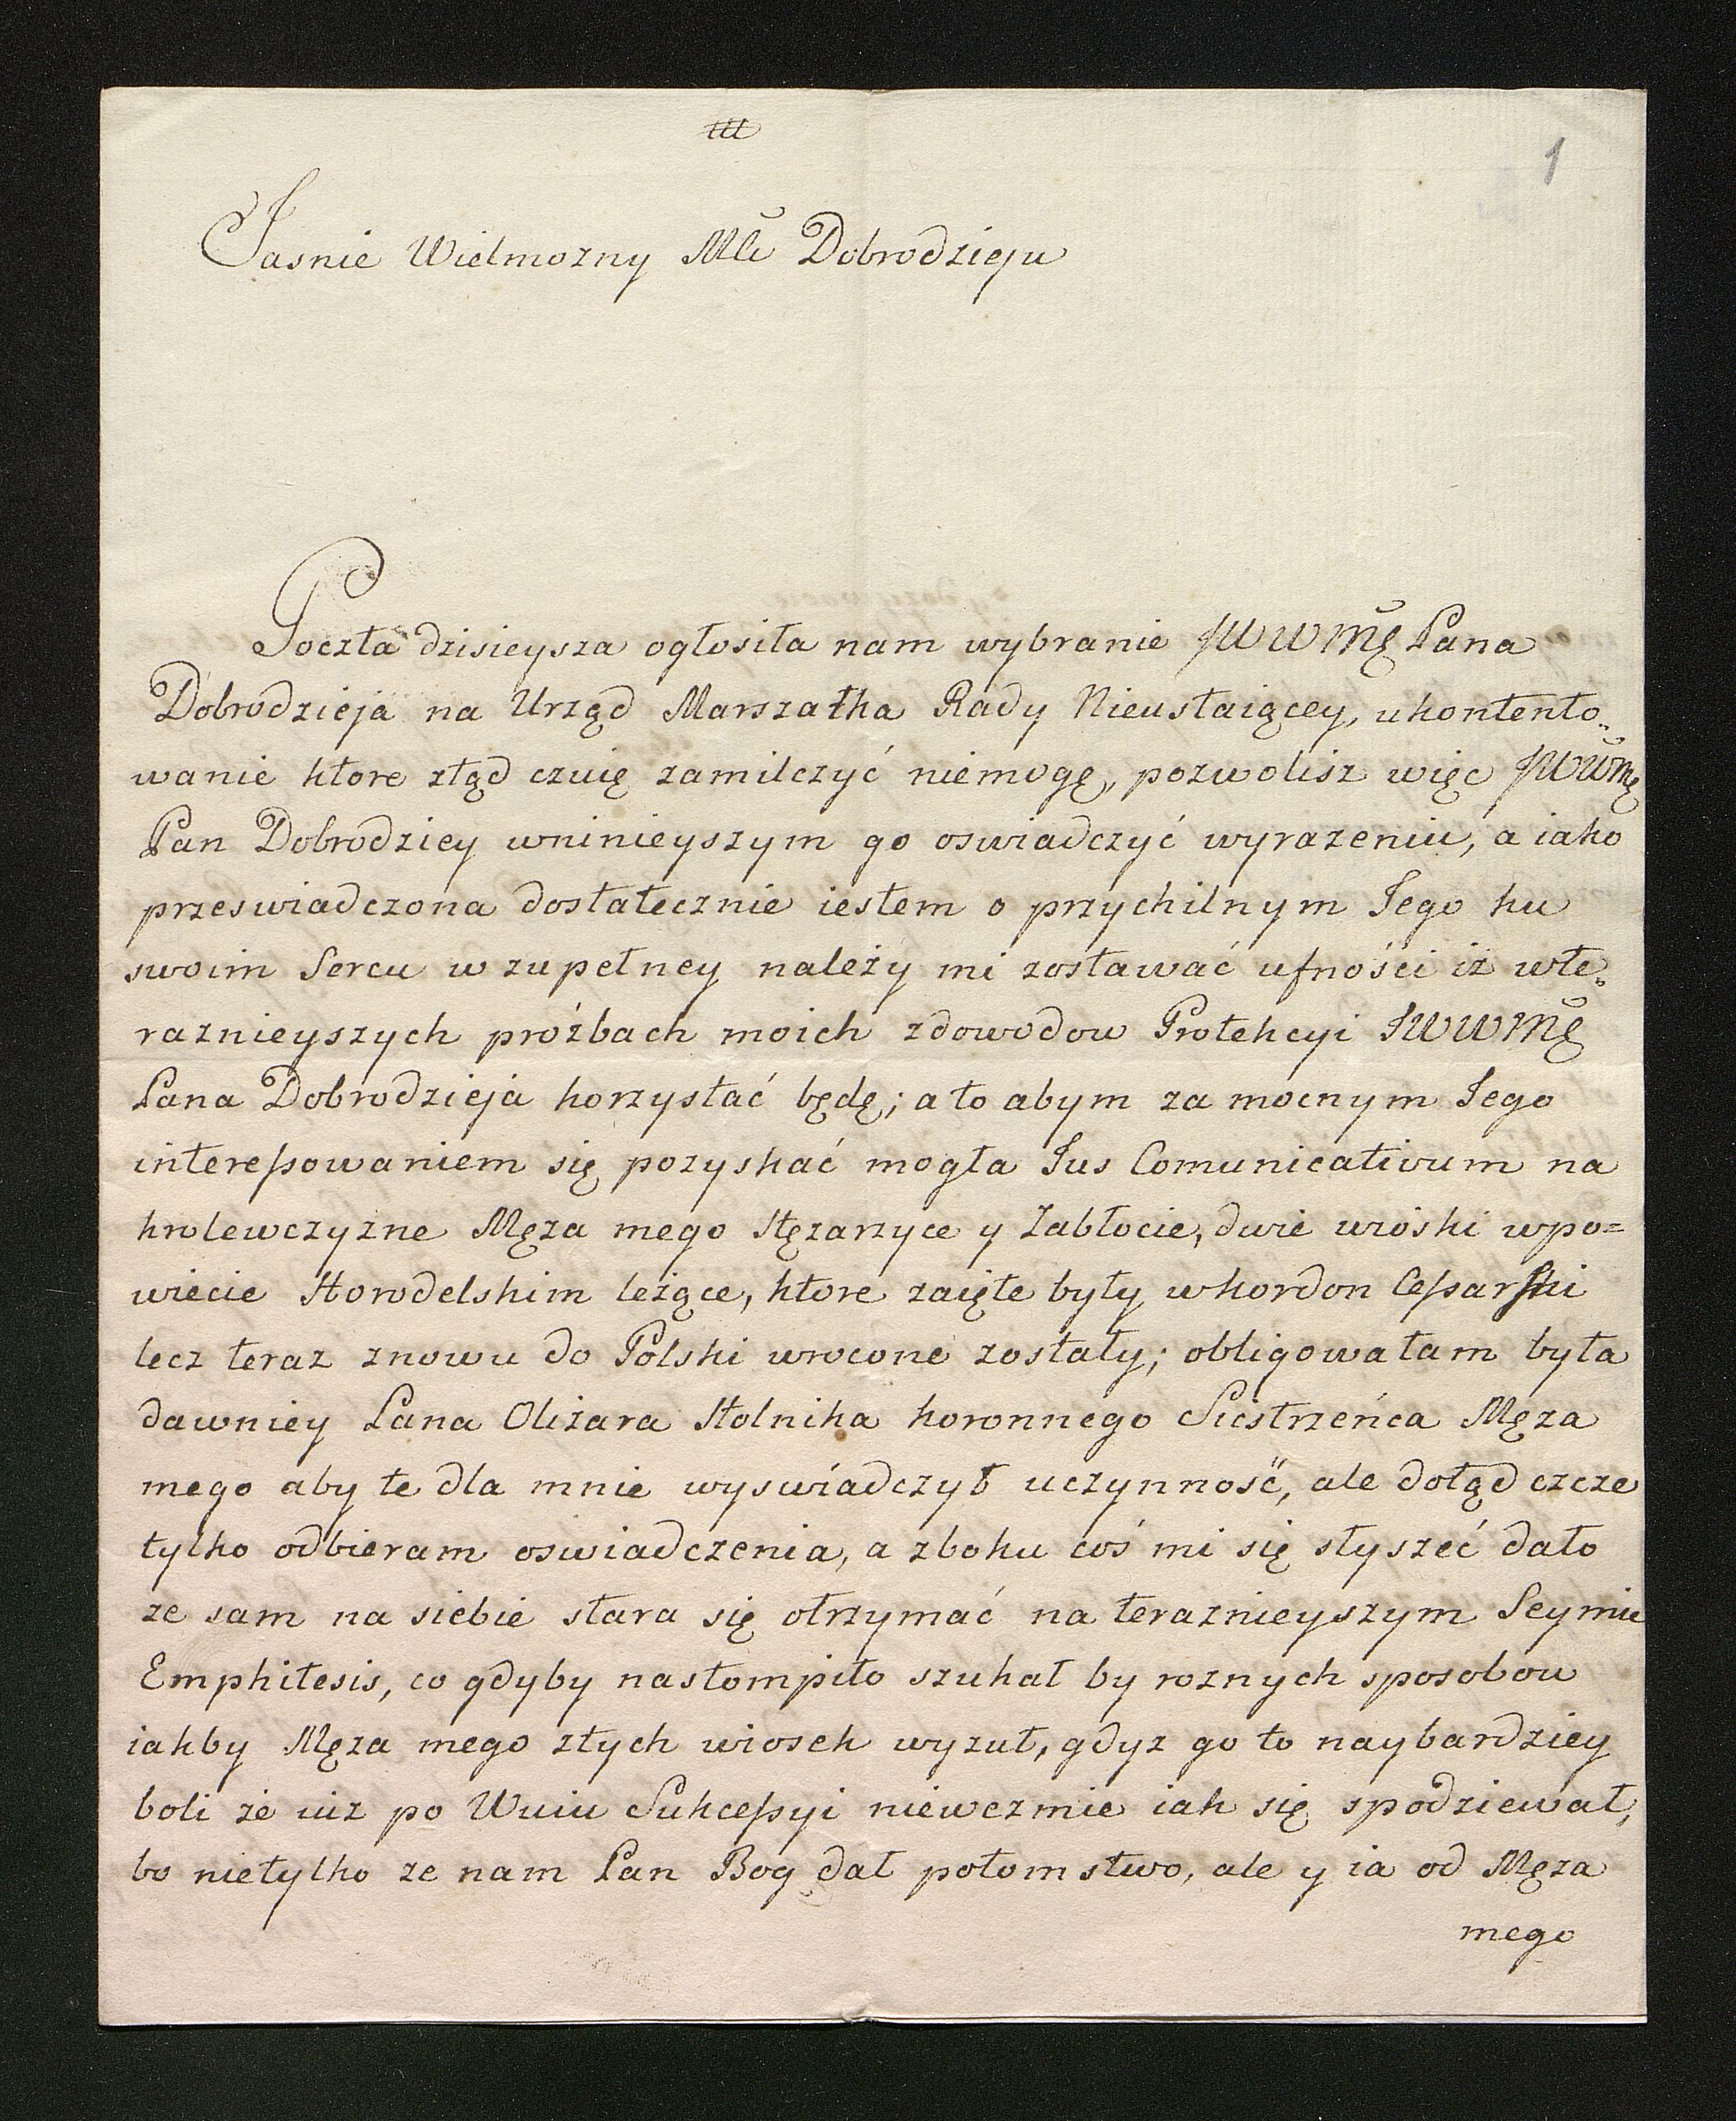 1
Jasnie Wielmozny Mci Dobrodzieju
Poczta dzisieysza ogłosiła nam wybranie JWWMę Pana
Dobrodzieja na Urząd Marszałka Rady Nieustaiącey, ukontento„
wanie ktore ztąd czuię zamilczyć niemogę, pozwolisz więc JWWmę
Pan Dobrodziey wninieyszym go oswiadczyć wyrazeniu, a iako
przeswiadczona dostatecznie iestem o przychilnym Jego ku
swoim Sercu w zupełney należy mi zostawać ufności iż wte„
raznieyszych proźbach moich zdowodow Protekcyi JWWMę
Pana Dobrodzieja korzystać będę; a to abym za mocnym Jego
interessowaniem się pozyskać mogła Jus Comunicativum na
krolewczyzne Męza mego Stęzarzyce y Zabłocie, dwie wióski wpo=
wiecie Horodelskim leżące, ktore zaięte były wkordon Cessarski
lecz teraz znowu do Polski wrocone zostały; obligowałam była
dawniey Pana Oliżara Stolnika koronnego Siestrzeńca Męza
mego aby te dla mnie wyswiadczył uczynność, ale dotąd czcze
tylko odbieram oswiadczenia, a zboku coś mi się słyszeć dało
ze sam na siebie stara się otrzymać na teraznieyszym Seymie
Emphitesis, co gdyby nastompiło szukał by roznych sposobow
iakby Męza mego ztych wiosek wyzuł, gdyz go to naybardziey
boli że iuz po Wuiu Sukcessyi niewezmie iak się spodziewał,
bo nietylko ze nam Pan Bog dał potomstwo, ale y ia od Męza
mego